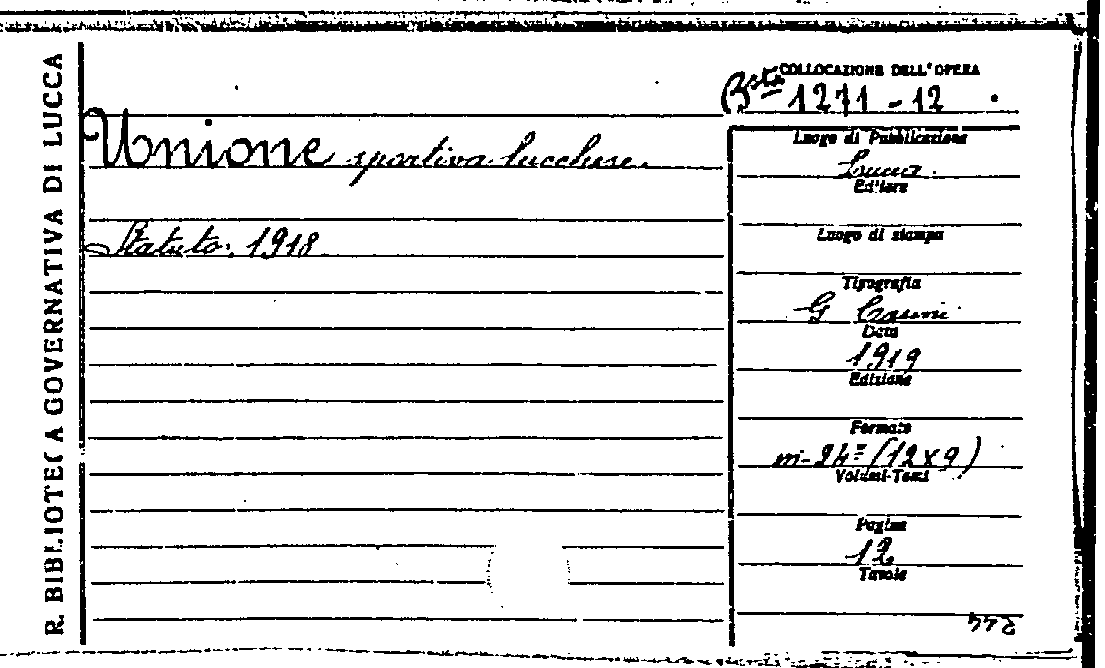 R. BIBLIOTECA GOVERNATIVA DI LUCCA
COLLOCAZIONE DELL'OPERA
Bsta 1271 - 12
Unione sportiva lucchese.
Statuto: 1918
Luogo di Pubblicazione
Lucca.
Editore
Luogo di stampa
Tipografia
G
Data
1919
Edizione
Formato
in-24º (12x9)
Volumi-Tomi
Pagine
12
Tavole